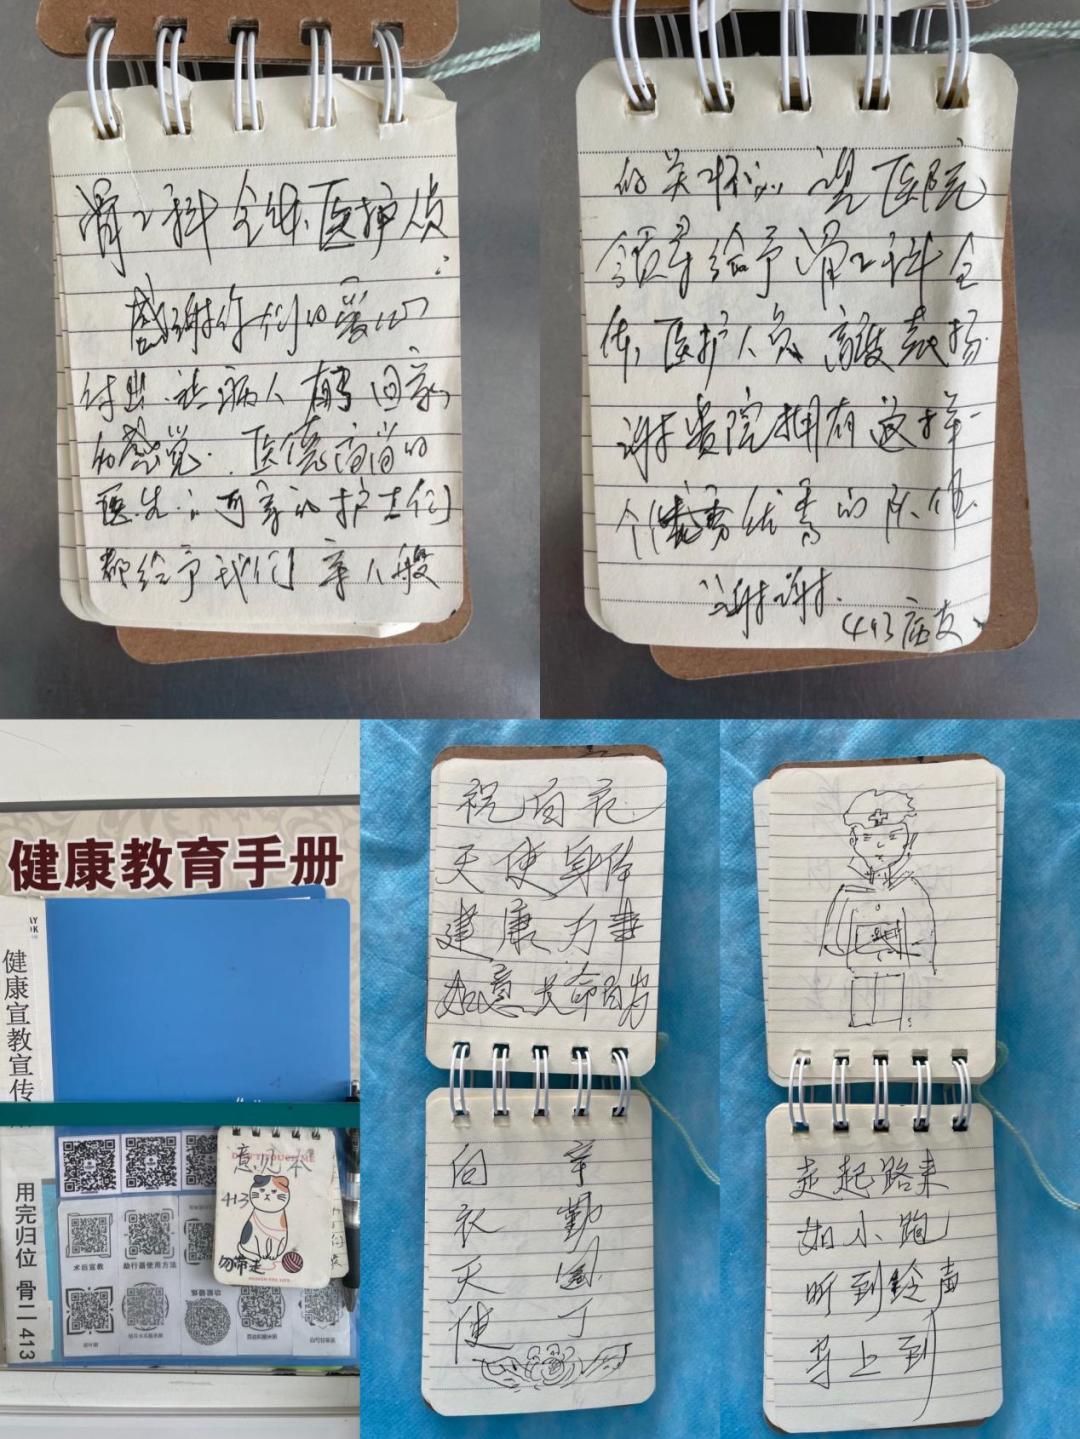 骨二科全体医护员:
感谢你们的爱心
付出.让病人有回家
的感觉.医德高尚的
医生:可亲的护士们
都给予我们亲人般
的关怀.望医院
领导给予骨二科全
体医护人员高度表扬
谢贵院拥有这样一
个优秀的队伍.
谢谢.
413病友
健康教育手册
健康宣教宣传
用完归位 骨二413
意见本
413
勿带走
术后宣教
助行器使用方法
祝白衣
天使身体
建康万事
如意长命百岁
白衣天使
辛勤园丁
走起路来
如小跑
听到铃声
马上到